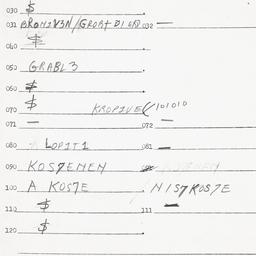 030 $
031 BRONZVSN/GROAT DICAD 032 —
040 $
050 GRABL 3
060 $
070 $ KROPIVEC 101010
071 — 072 —
080 LOPIT1 081 —
090 KOSTENEN
100 A KOSTE . NISTROSTE
110 $ 111 —
120 $